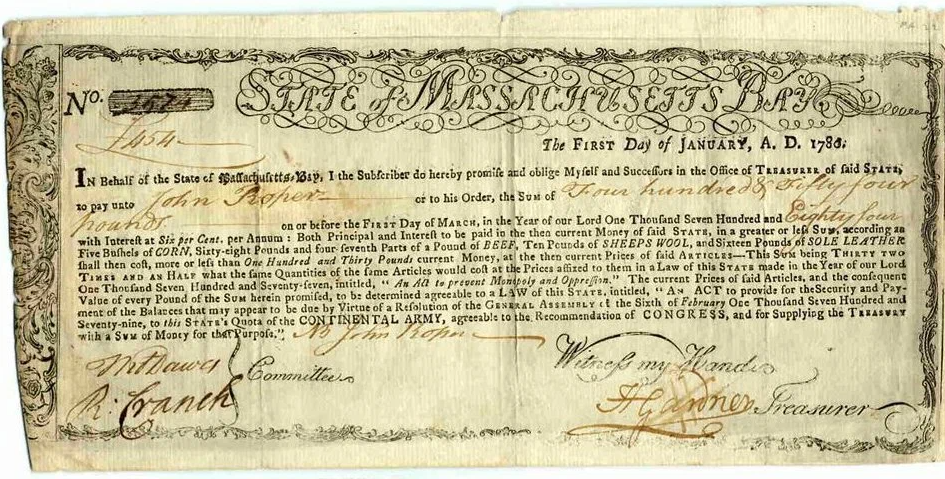 No. 1571
STATE of MASSACHUSETTS BAY.
£454
The FIRST Day of JANUARY, A. D. 1780.
IN Behalf of the State of Massachusetts-Bay, I the Subscriber do hereby promise and oblige Myself and Successors in the Office of TREASURER of said STATE,
to pay unto John Roper or to his Order, the SUM of Four hundred & Fifty four
pounds on or before the FIRST Day of MARCH, in the Year of our Lord One Thousand Seven Hundred and Eighty four
with Interest at Six per Cent. per Annum: Both Principal and Interest to be paid in the then current Money of said STATE, in a greater or less SUM, according as
Five Bushels of CORN, Sixty-eight Pounds and four-seventh Parts of a Pound of BEEF, Ten Pounds of SHEEPS WOOL, and Sixteen Pounds of SOLE LEATHER
shall then cost, more or less than One Hundred and Thirty Pounds current Money, at the then current Prices of said ARTICLES—This SUM being THIRTY TWO
TIMES AND AN HALF what the same Quantities of the same Articles would cost at the Prices affixed to them in a Law of this STATE made in the Year of our Lord
One Thousand Seven Hundred and Seventy-seven, intitled, "An Act to prevent Monopoly and Oppression." The current Prices of said Articles, and the consequent
Value of every Pound of the SUM herein promised, to be determined agreeable to a LAW of this STATE, intitled, "AN ACT to provide for the Security and Pay-
ment of the Balances that may appear to be due by Virtue of a Resolution of the GENERAL ASSEMBLY of the Sixth of February One Thousand Seven Hundred and
Seventy-nine, to this STATE'S Quota of the CONTINENTAL ARMY, agreeable to the Recommendation of CONGRESS, and for Supplying the TREASURY
with a SUM of Money for that Purpose." John Roper
Witness my Hand
Dawes
Committee
R: Cranch
H Gardner Treasurer